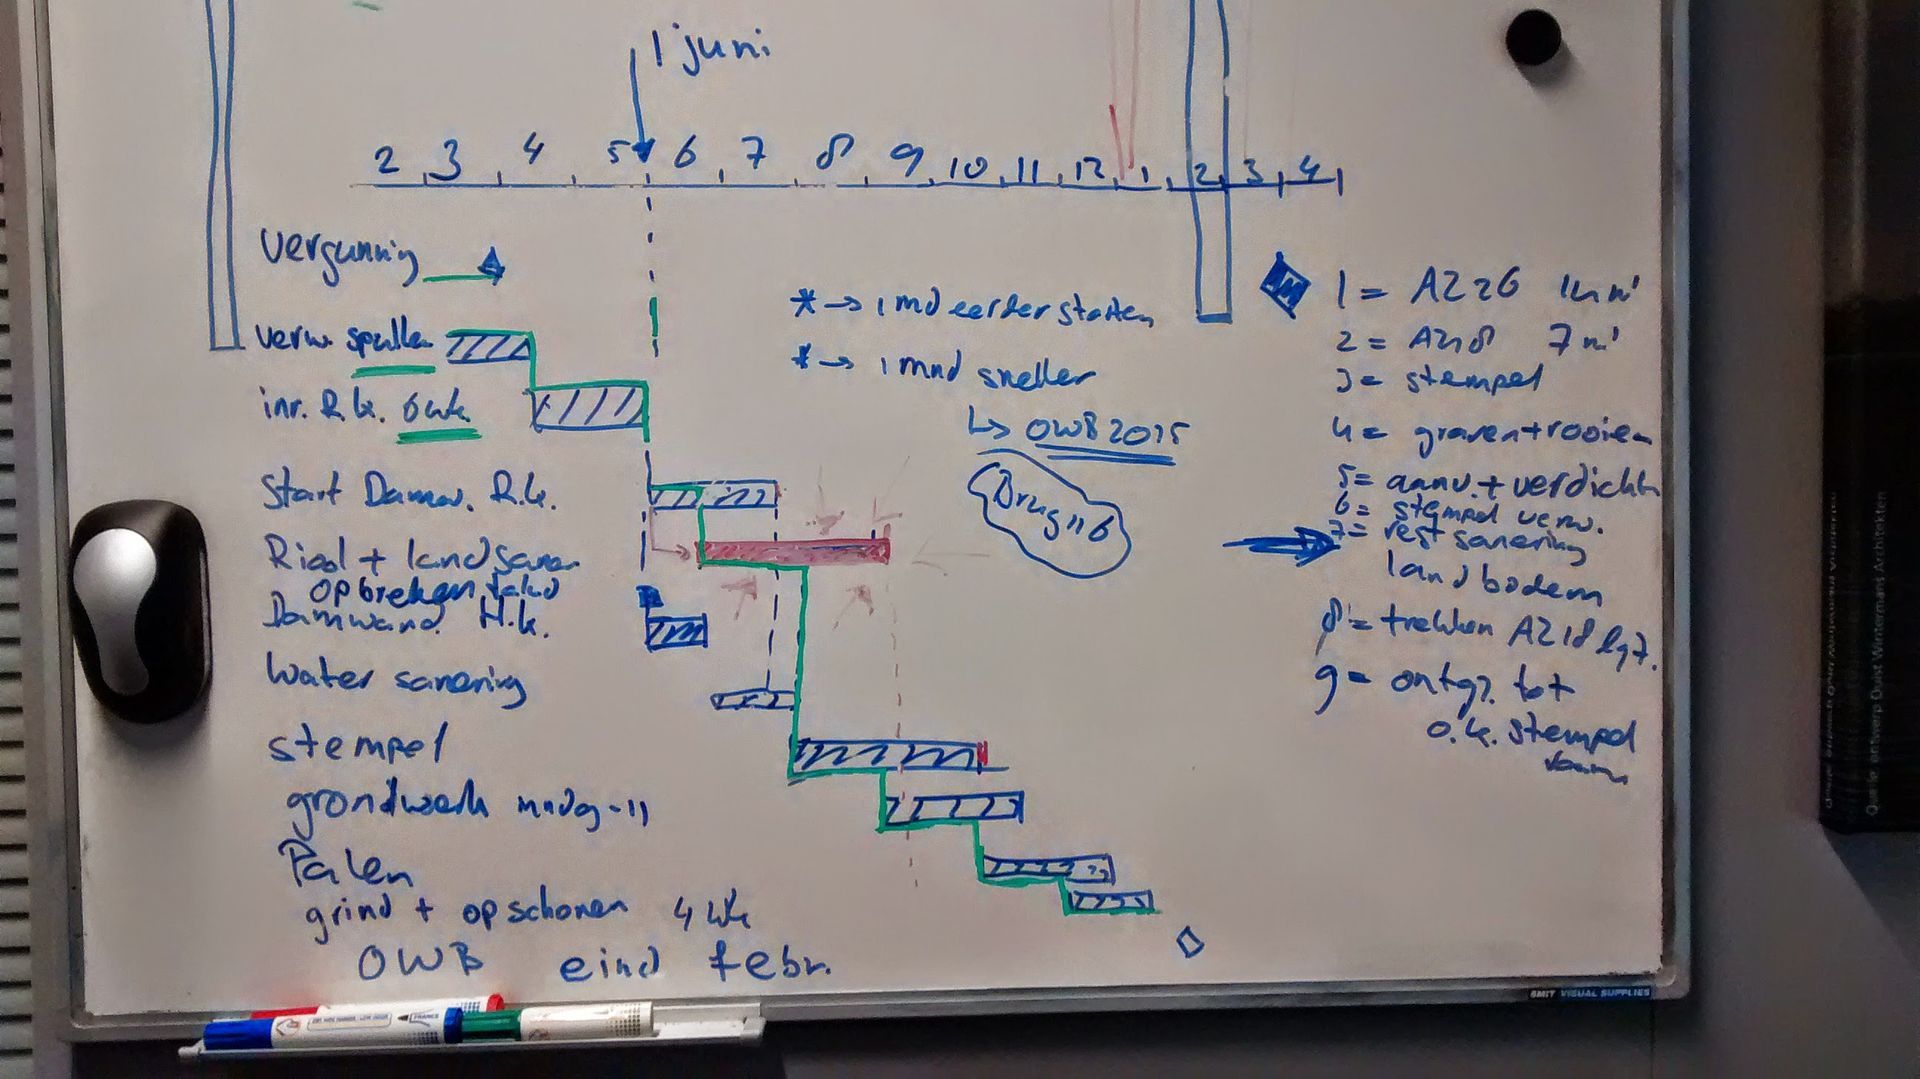 1 juni
2 3 4 5 6 7 8 9 10 11 12 1 2 3 4
vergunning
verw. spullen
inr. R.k. 6wk.
Start Damw. R.k.
Riool + landsaner
opbreken
Damwand H.k.
Water sanering
stempel
grondwerk mnd 9-11
Palen
grind + opschonen 4 wk
OWB eind febr.
* → 1 md eerder starten
* → 1 mnd sneller
↳ OWB 2015
Brug 116
1 = AZ26
2 = AZ18 7 m'
3 = stempel
4 = graven + rooien
5 = aanv. + verdichten
6 = stempel verw.
7 = rest sanering
land bodem
8 = trekken AZ18
9 = ontgr. tot
o.k. stempel
raam
SMIT VISUAL SUPPLIES